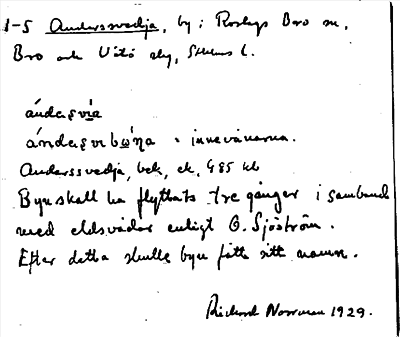 1-5 Anderssvedja, by i Roslags Bro sn,
Bro och Vätö shg, Sthlms l.
ándeʂvia
ándeʂvibωna = innevånarna.
Anderssvedja, bek, ek, G85 kb
Byn skall ha flyttats tre gånger i samband
med eldsvådor enligt O. Sjöström.
Efter detta skulle byn fått sitt namn.
Richard Norrman 1929.